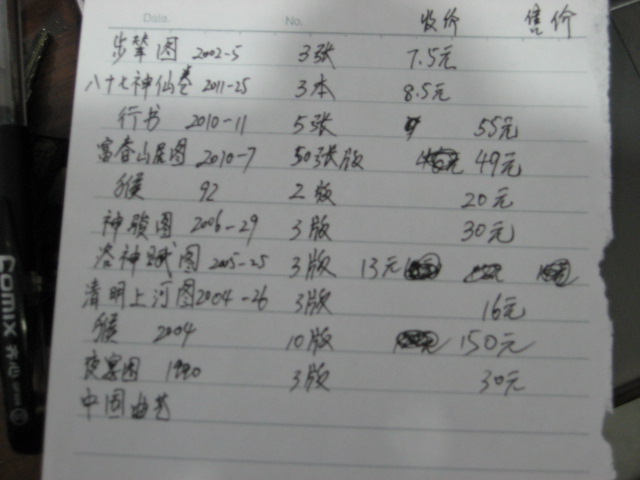 Date. No. 收价 售价
步辇图 2002-5 3张 7.5元
八十七神仙卷 2011-25 3本 8.5元
行书 2010-11 5张 55元
富春山居图 2010-7 50张版 49元
猴 92 2版 20元
神骏图 2006-29 3版 30元
洛神赋图 2005-25 3版 13元
清明上河图2004-26 3版 16元
猴 2004 10版 150元
夜宴图 1990 3版 30元
中国曲艺
Comix 齐心